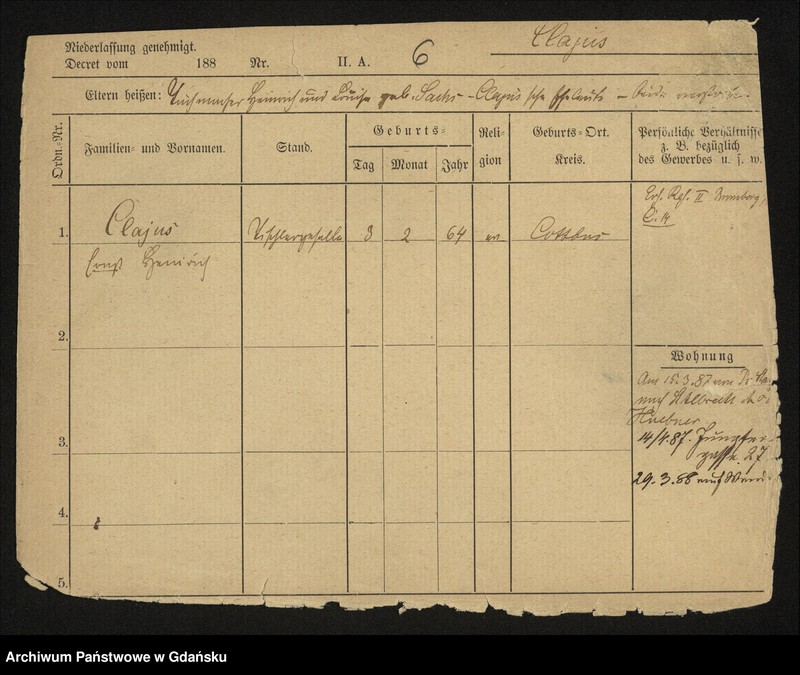 Clajus
Niederlassung genehmigt.
Decret vom 188 Nr. II. A. 6
Eltern heißen: Tuchmacher Heinrich und Luise geb. Sachs - Clajus'sche Eheleute - beide verstorben.
Ordn.-Nr. Familien- und Vornamen. Stand. Geburts- Tag Monat Jahr Religion Geburts-Ort. Kreis. Persönliche Verhältnisse z. B. bezüglich des Gewerbes u. s. w.
Ers. Res. II
1. Clajus Tischlergeselle 3 2 64 ev Cottbus
Ernst Heinrich
2.
Wohnung
Am 15.3.87 von
nach
Huebner
3.
14/4.87. Junkergasse 27
29.3.88 auf
4.
5.
Archiwum Państwowe w Gdańsku